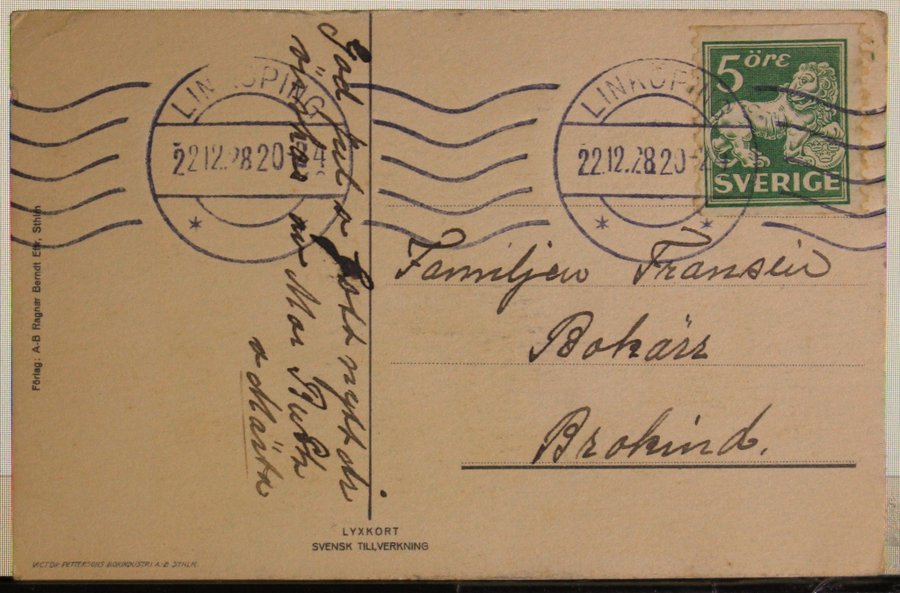 God Jul o Gott nytt år
önskar av Mor Ruth
o Märta
LINKÖPING
22.12.28.20-24
LINKÖPING
22.12.28.20-24
5 öre
SVERIGE
Familjen Fransén
Bokärr
Brokind.
Förlag: A-B Ragnar Berndt Eftr, Sthlm
LYXKORT
SVENSK TILLVERKNING
VICTOR PETTERSONS BOKINDUSTRI A.-B. STHLM.